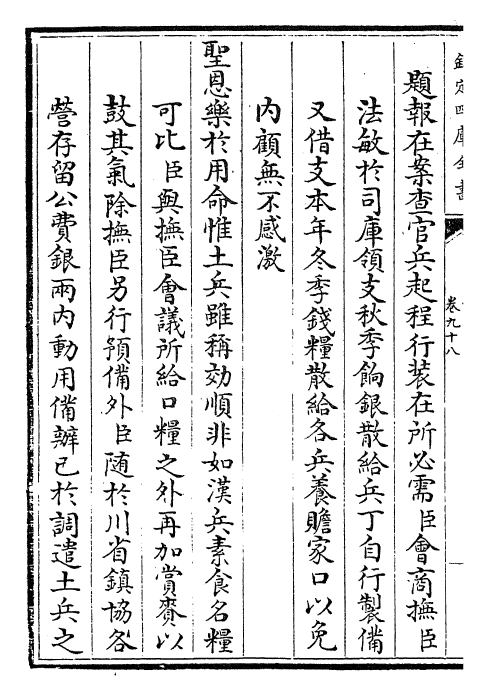 欽定四庫全書
卷九十八
題報在案查官兵起程行裝在所必需臣會商撫臣
法敏於司庫領支秋季餉銀散給兵丁自行製備
又借支本年冬季錢糧散給各兵養贍家口以免
內顧無不感激
聖恩樂於用命惟土兵雖稱効順非如漢兵素食名糧
可比臣與撫臣會議所給口糧之外再加賞賚以
鼓其氣除撫臣另行預備外臣随於川省鎮協各
營存留公費銀兩內動用備辦已於調遣土兵之